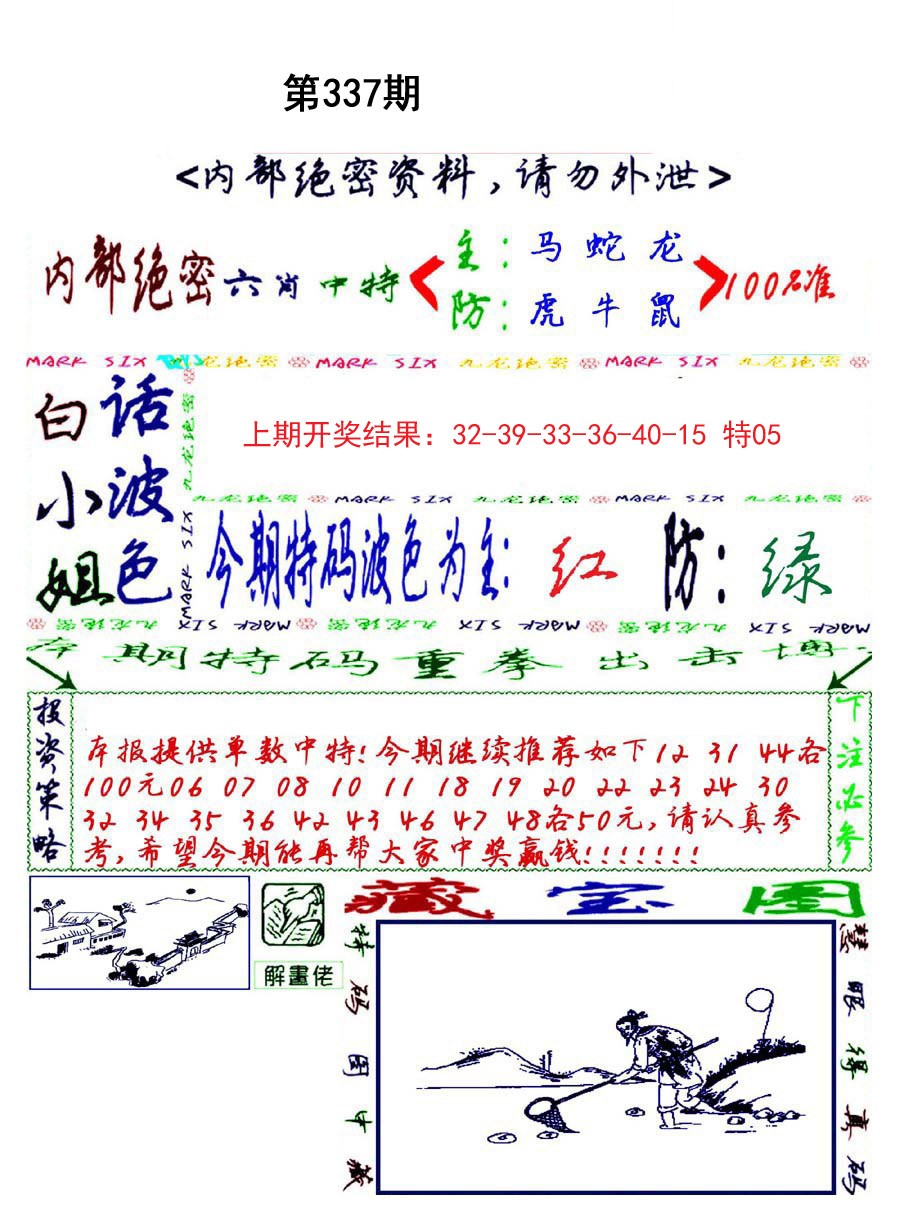 第337期
<内部绝密资料,请勿外泄>
内部绝密六肖中特
主:马 蛇 龙
防:虎 牛 鼠
100%准
MARK SIX 九龙绝密 MARK SIX 九龙绝密 MARK SIX 九龙绝密
白小姐
话波色
九龙绝密
MARK SIX
上期开奖结果：32-39-33-36-40-15 特05
九龙绝密 MARK SIX 九龙绝密 MARK SIX 九龙绝密
今期特码波色为主:红 防:绿
九龙绝密 MARK SIX 九龙绝密 MARK SIX 九龙绝密 MARK SIX
本期特码重拳出击博
投资策略
本报提供单数中特!今期继续推荐如下12 31 44各
100元06 07 08 10 11 18 19 20 22 23 24 30
32 34 35 36 42 43 46 47 48各50元,请认真参
考,希望今期能再帮大家中奖赢钱!!!!!!!
下注必参
解畫佬
藏宝图
特码图中藏
慧眼得真码